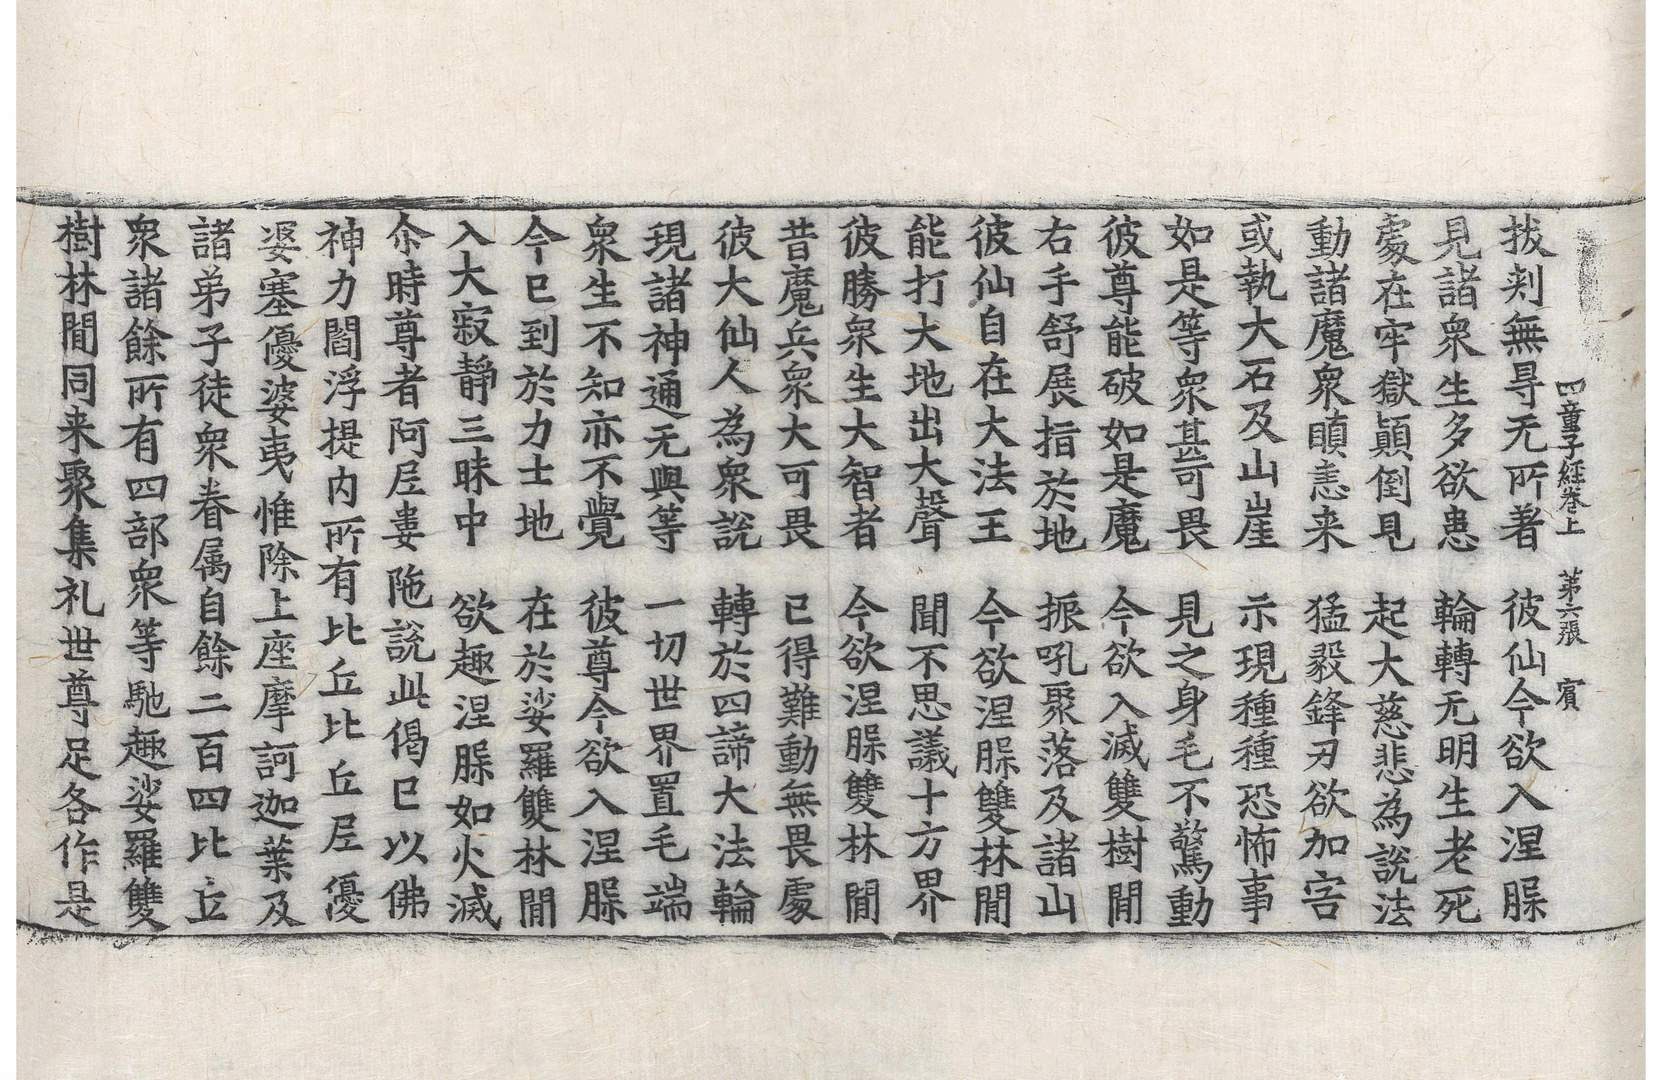 四童子経卷上　第六張　賓
拔刾無㝵无所著　彼仙今欲入涅槃
見諸衆生多欲患　輪轉无明生老死
處在牢獄顚倒見　起大慈悲為說法
動諸魔衆瞋恚来　猛毅鋒刃欲加害
或執大石及山崖　示現種種恐怖事
如是等衆甚可畏　見之身毛不驚動
彼尊能破如是魔　今欲入滅雙樹間
右手舒展指於地　振吼聚落及諸山
彼仙自在大法王　今欲涅槃雙林間
能打大地出大聲　聞不思議十方界
彼勝衆生大智者　今欲涅槃雙林間
昔魔兵衆大可畏　已得難動無畏處
彼大仙人為衆說　轉於四諦大法輪
現諸神通无與等　一切世界置毛端
衆生不知亦不覺　彼尊今欲入涅槃
今已到於力士地　在於娑羅雙林間
入大寂靜三昧中　欲趣涅槃如火滅
尒時尊者阿𡰱婁陁說此偈已以佛
神力閻浮提内所有比丘比丘𡰱優
婆塞優婆夷惟除上座摩訶迦葉及
諸弟子徒衆眷属自餘二百四比丘
衆諸餘所有四部衆等馳趣娑羅雙
樹林間同来聚集礼世尊足各作是